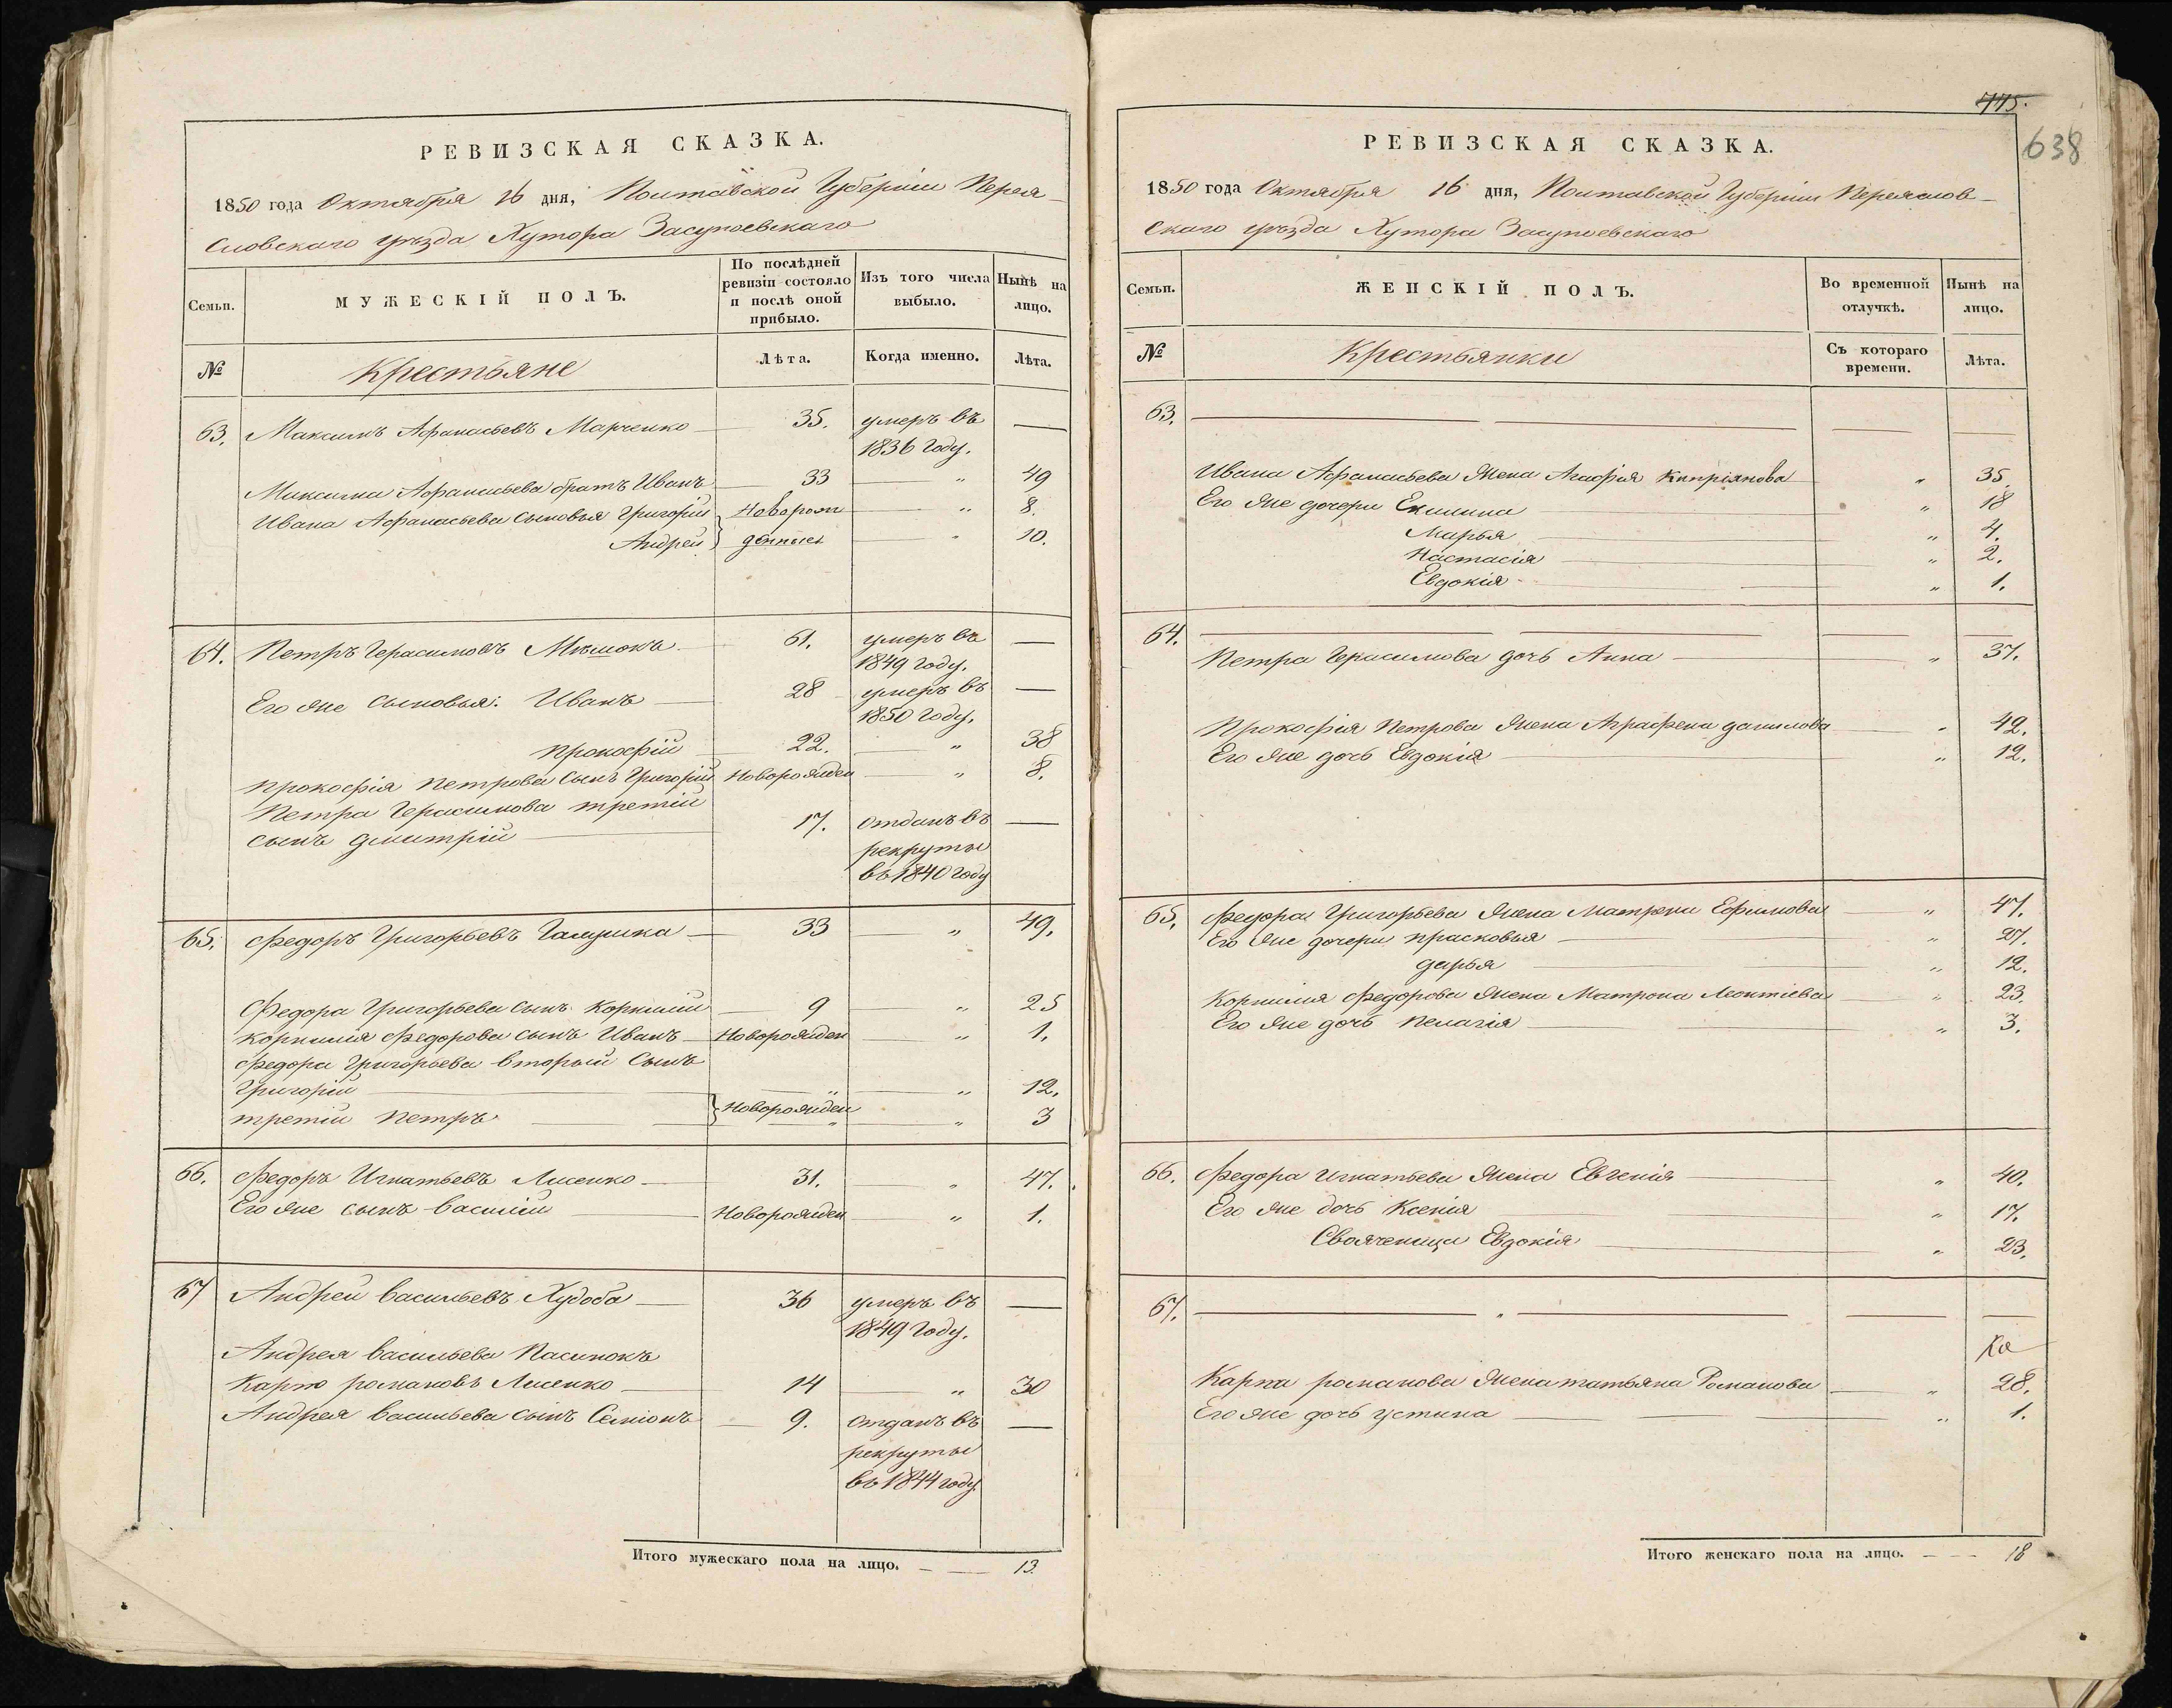 РЕВИЗСКАЯ СКАЗКА.
1850 года Октября 16 дня, Полтавской Губерніи Перея-
словскаго уѣзда Хутора Засупоевскаго
Семьи.
МУЖЕСКІЙ ПОЛЪ.
По послѣдней
ревизіи состояло
и послѣ оной
прибыло.
Изъ того числа
выбыло.
Нынѣ на
лицо.
№
Крестьяне
Лѣта.
Когда именно.
Лѣта.
63. Максимъ Афанасьевъ Марченко 35. умеръ въ —
1836 году.
Максима Афанасьева братъ Иванъ 33 „ 49
Ивана Афанасьева сыновья Григорій Новорож „ 8.
Андрей денные „ 10.
64. Петръ Герасимовъ Мѣшокъ 61. умеръ въ —
1849 году.
Его же сыновья: Иванъ 28 умеръ въ —
1850 году.
Прокофій 22. „ 38
Прокофія Петрова сынъ Григорій Новорожден „ 8.
Петра Герасимова третій
сынъ Дмитрій 17. отданъ въ —
рекруты
въ 1840 году
65. Федоръ Григорьевъ Галушка 33 „ 49.
Федора Григорьева сынъ Корнилій 9 „ 25
Корнилія Федорова сынъ Иванъ Новорожден „ 1.
Федора Григорьева вторый сынъ
Григорій „ „ 12.
третій Петръ Новорожден „ „ 3
66. Федоръ Игнатьевъ Лисенко 31. „ 47.
Его же сынъ Василій Новорожден „ 1.
67 Андрей Васильевъ Худоба 36 умеръ въ —
1849 году.
Андрея Васильева Пасинокъ
Карпо Романовъ Лисенко 14 „ 30
Андрея Васильева сынъ Семіонъ 9. отданъ въ —
рекруты
въ 1844 году.
Итого мужескаго пола на лицо. — — 13.
775.
638
РЕВИЗСКАЯ СКАЗКА.
1850 года Октября 16 дня, Полтавской Губерніи Переяслов-
скаго уѣзда Хутора Засупоевскаго
Семьи.
ЖЕНСКІЙ ПОЛЪ.
Во временной
отлучкѣ.
Нынѣ на
лицо.
№
Крестьянки
Съ котораго
времени.
Лѣта.
63.
Ивана Афанасьева жена Агафія Кипріянова „ 35.
Его же дочери Екилина „ 18
Марья „ 4.
Настасія „ 2.
Евдокія „ 1.
64.
Петра Герасимова дочь Анна „ 37.
Прокофія Петрова жена Аграфена Данилова „ 42.
Его же дочь Евдокія „ 12.
65. Федора Григорьева жена Матрена Ефимова „ 47.
Его же дочери Прасковья „ 27.
Дарья „ 12.
Корнилія Федорова жена Матрона Леонтіева „ 23.
Его же дочь Пелагія „ 3.
66. Федора Игнатьева жена Евгенія „ 40.
Его же дочь Ксенія „ 17.
Свояченица Евдокія „ 23.
67. „
Карпа Романова жена татьяна Романова „ 28.
Его же дочь Устина „ 1.
Итого женскаго пола на лицо. — — 18